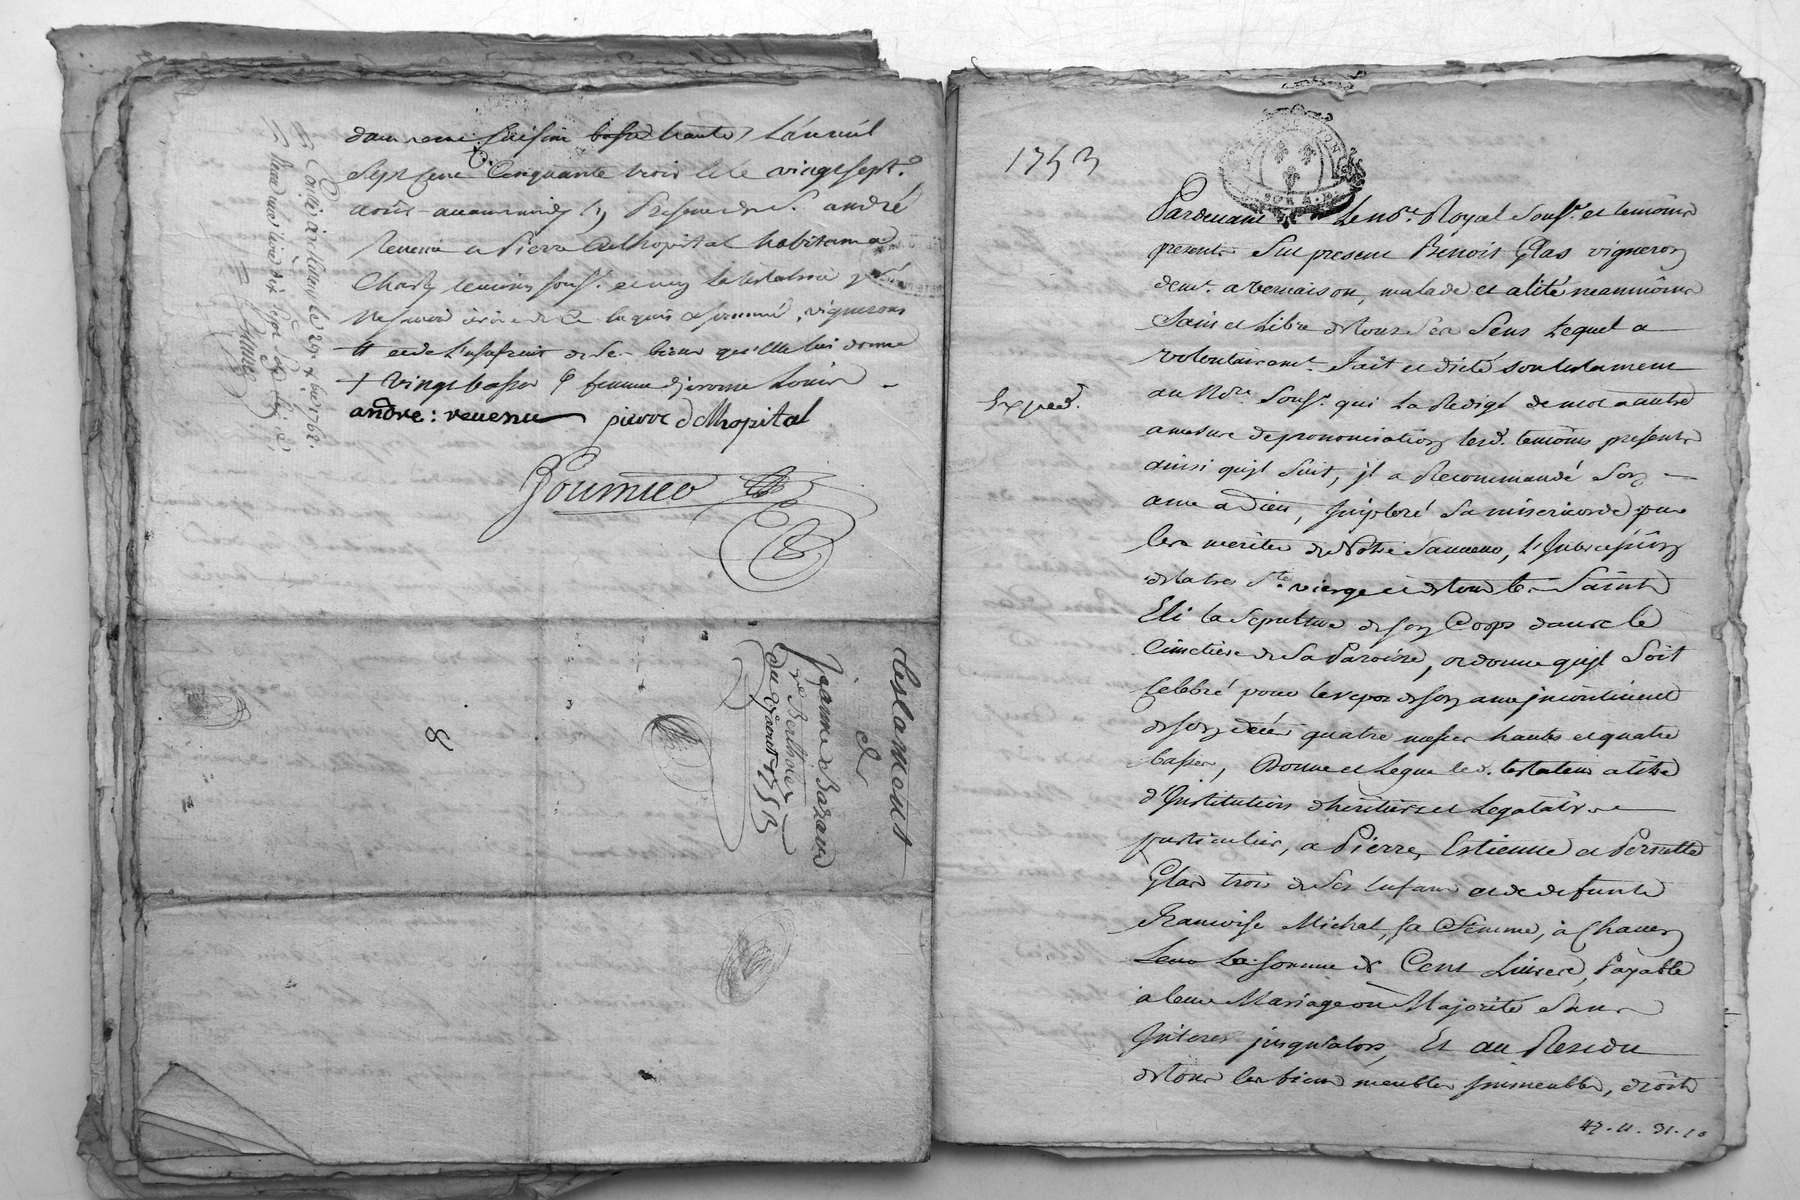 L'an mil
Sept Cent Cinquante trois le vingt sept.e
aoust avant midy En Presence de S.r andré
Revenu et Pierre Delhopital habitans a
Charly temoins sous.s
Ne savoir écrire de ce Enquis et sommé, vignerons
et de L'usufruit de Ses biens qu'Elle lui donne
+ vingt basses femme de jerome Louis
andre : revenu pierre d Elhopital
testament
de
Jeanne Bazard
du 27 aout 1753
8
1753
Expéd.
Pardevant Le no.re Royal Sous.é et temoins
presents fut present Benoit Glas vigneron
dem.t a vernaison, malade et alité neanmoins
Sain et Libre de tous Ses Sens Lequel a
volontairem.t fait et dicté son testament
au No.re Sous.é qui La Redigé de mot a autre
a mesure de prononciation lesd. temoins presents
ainsi qu'jl Suit, jl a Recommandé Son
ame a Dieu, Imploré Sa misericorde par
les merites de Notre Sauveur, L'Intercession
de la tres S.te vierge et de tous les Saints
Eli la Sepulture de son Corps dans le
Cimetiere de Sa Paroisse, ordonne qu'jl Soit
Celebré pour le repos de son ame jncontinent
de son décès quatre messes hautes et quatre
basses, Donne et Legue led. testateur a titre
d'Institution d'heritiers et Legataires
particuliers, a Pierre, Estienne et Pernette
Glas trois de Ses Enfans et de defunte
Francoise Michal, sa femme, à Chacun
La somme de Cent Livres, Payable
a leur Mariage ou Majorité Sans
Interet jusqu'alors, Et au Residu
de tous les biens meubles Immeubles, droits
47.11.31.10